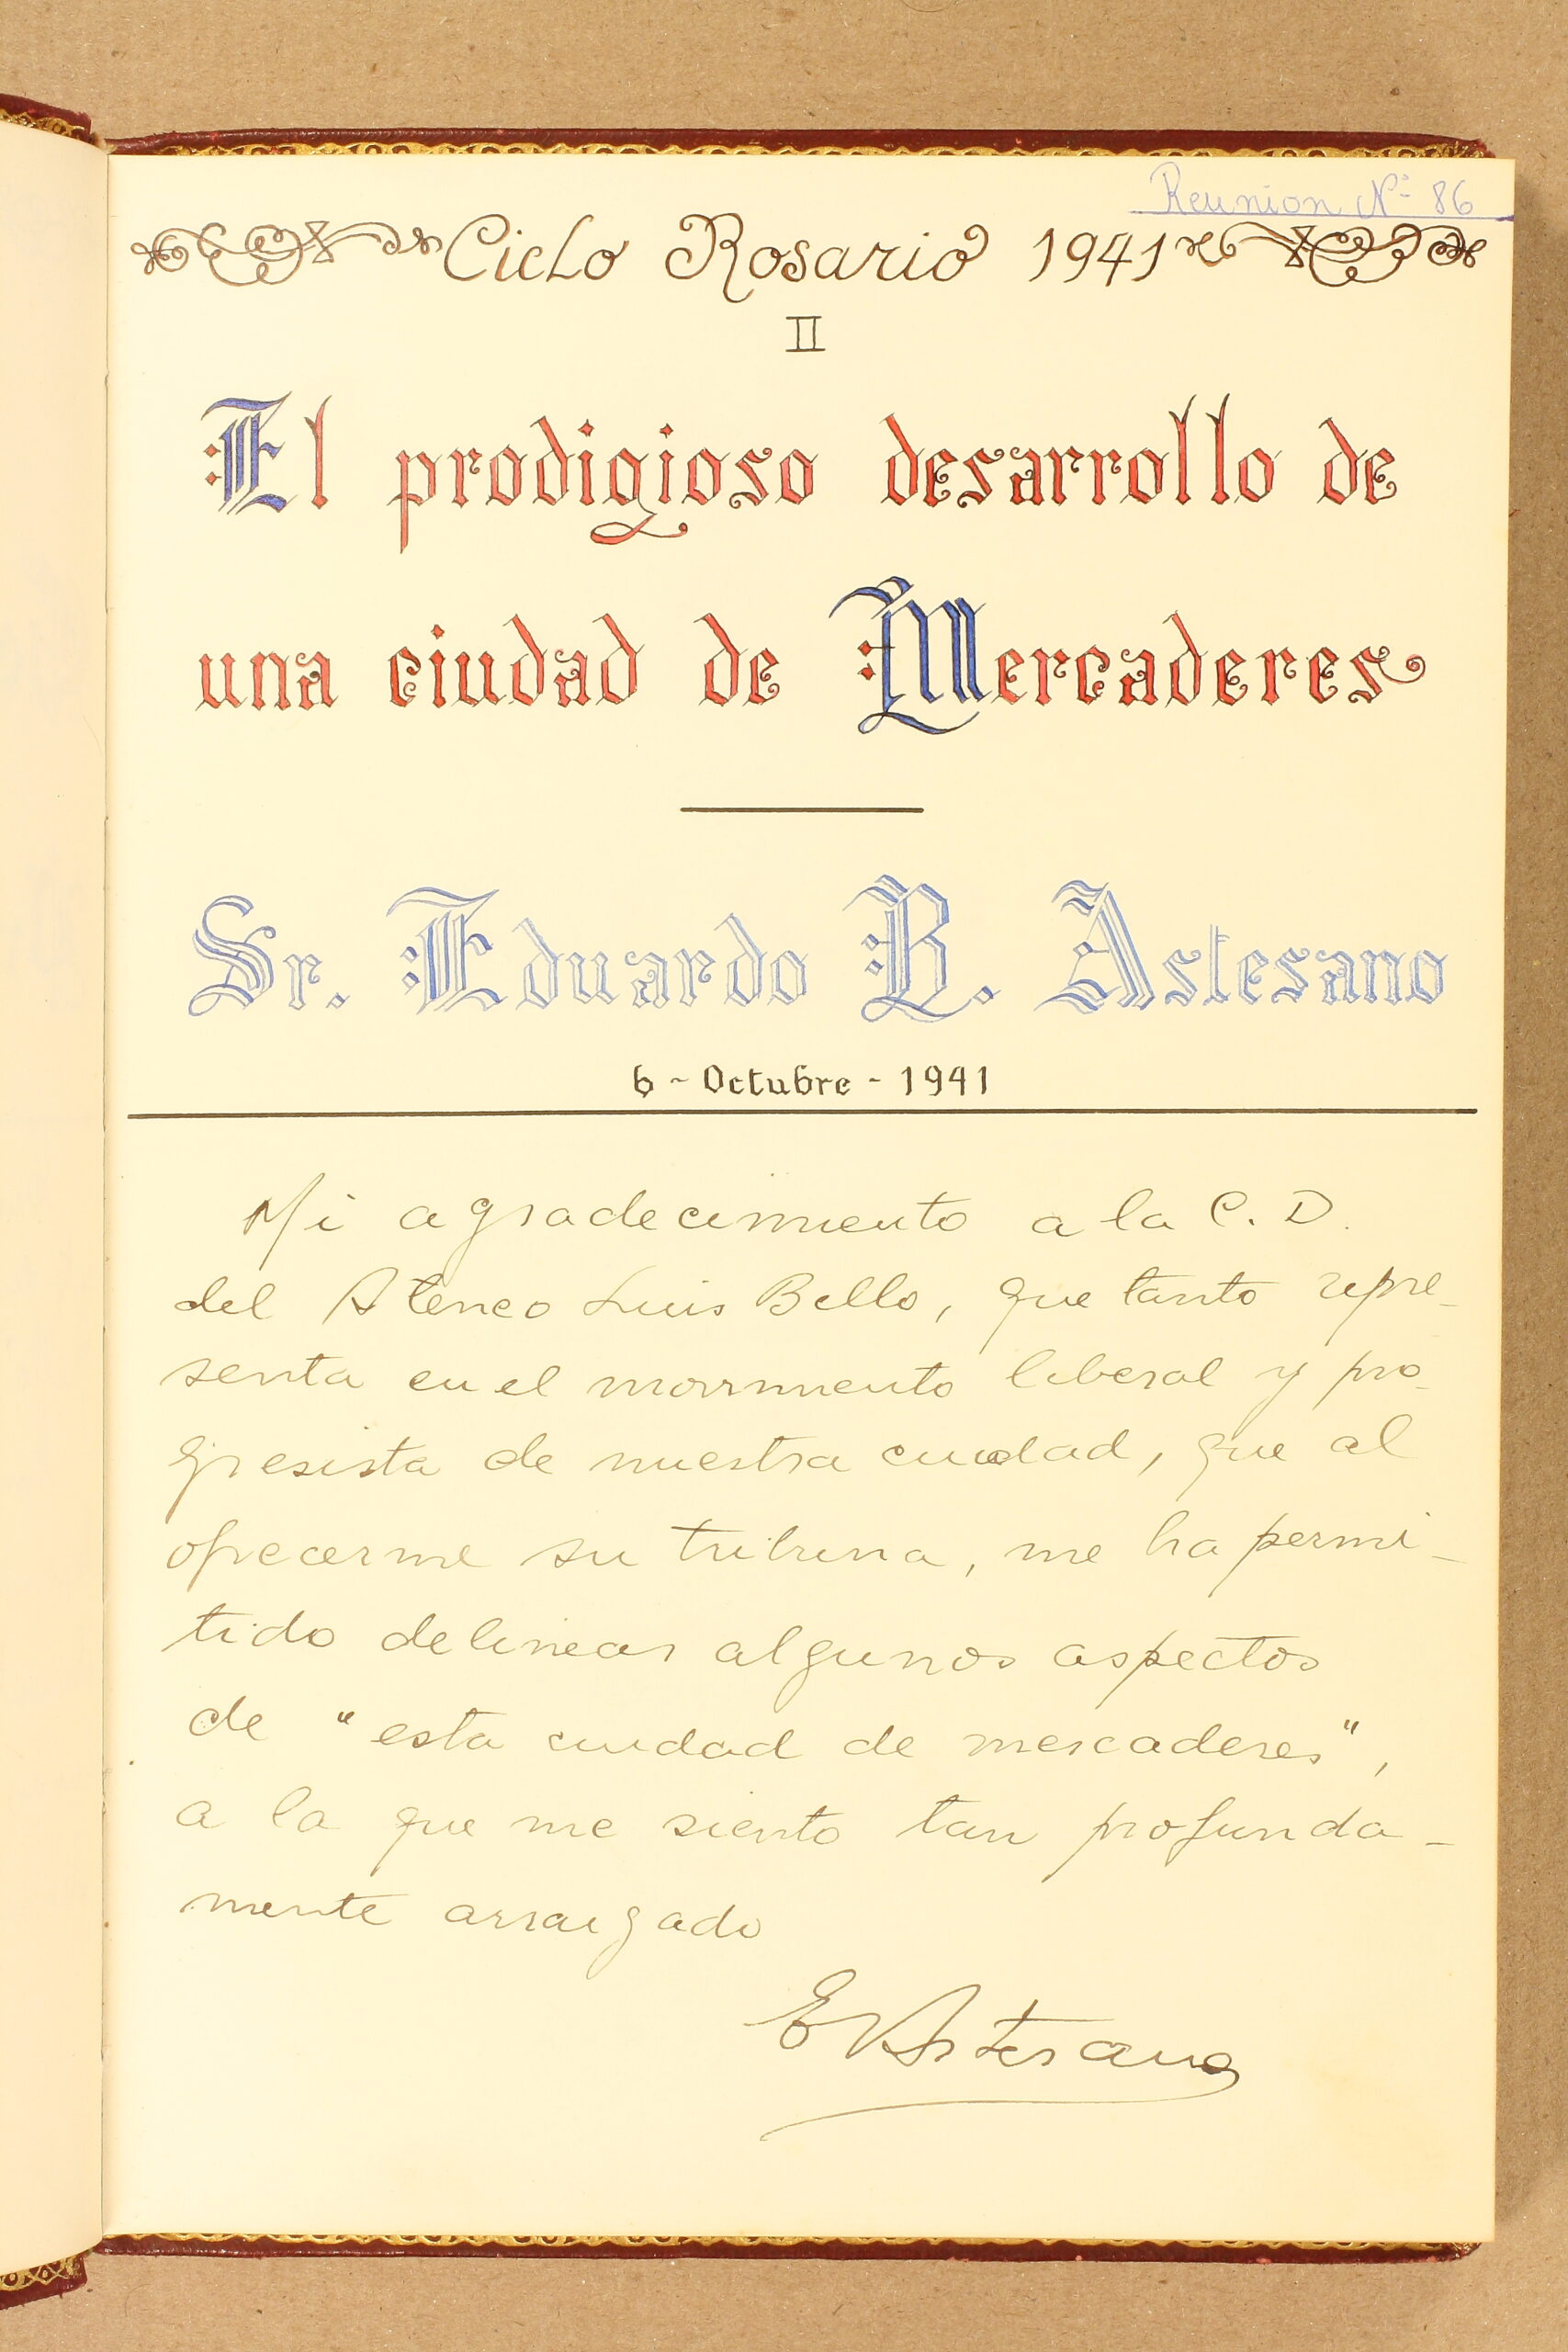 Reunion Nº 86
Ciclo Rosario 1941
II
El prodigioso desarrollo de
una ciudad de Mercaderes
Sr. Eduardo B. Astesano
6 - Octubre - 1941
Mi agradecimiento a la C. D.
del Ateneo Luis Bello, que tanto repre-
senta en el movimiento liberal y pro-
gresista de nuestra ciudad, que al
ofrecerme su tribuna, me ha permi-
tido delinear algunos aspectos
de "esta ciudad de mercaderes",
a la que me siento tan profunda-
mente arraigado
E Astesano